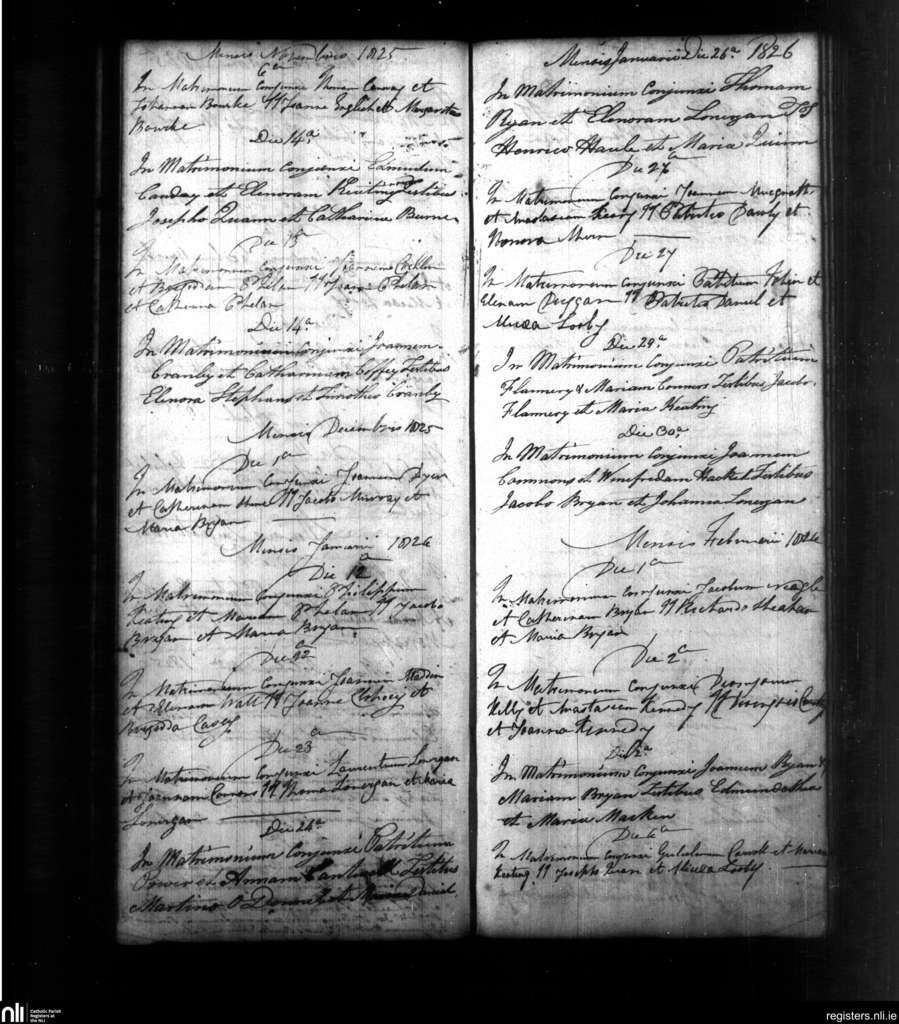 Mensis Novembris 1825
6a
In Matrimonium Conjunxi Thomam Conway et
Johannam Bourke TT Joanne English et Margarita
Bourke
Die 14a
In Matrimonium Conjunxi Edmundum
Canday et Elenoram Keating Testibus
Josepho Quann et Catharina Burne
Die 15
In Matrimonium Conjunxi
et Brigidam Phelan TT Joanne Phelan
et Catherina Phelan
Die 14a
In Matrimonium Conjunxi Joannem
Cranly et Catharinam Coffey Testibus
Elenora Stephans et Timotheo Cranly
Mensis Decembris 1825
Die 1a
In Matrimonium Conjunxi Joannem Dyer
et Catherinam TT Jacobo Murray et
Maria Bryan
Mensis Januarii 1826
Die 12a
In Matrimonium Conjunxi Philippum
Keating et Mariam Phelan TT Jacobo
Bryan et Maria Bryan
Die 22a
In Matrimonium Conjunxi Joannem Maddin
et Elenoram Watt TT Joanne et
Brigida Casey
Die 23a
In Matrimonium Conjunxi Laurentium Lonergan
et Joannam Connors TT Thoma Lonergan et Maria
Lonergan
Die 24a
In Matrimonium Conjunxi Patritium
Power et Annam Cantwell Testibus
Martino O Donnel et Maria Daniel
Mensis Januarii Die 26a 1826
In Matrimonium Conjunxi Thomam
Ryan et Elenoram Lonergan TT
Henrico Haule et Maria Quinn
Die 27a
In Matrimonium Conjunxi Joannem
et Anastasiam Keary TT Patritio Dawly et
Honora
Die 27
In Matrimonium Conjunxi Patritium Tobin et
Elenam Duggan TT Patritio Daniel et
Alicia Looby
Die 29a
In Matrimonium Conjunxi Patritium
Flannery & Mariam Connors Testibus Jacobo
Flannery et Maria Keating
Die 30a
In Matrimonium Conjunxi Joannem
Commons et Winefredam Hacket Testibus
Jacobo Bryan et Johanna Lonergan
Mensis Februarii 1826
Die 1a
In Matrimonium Conjunxi Jacobum Neagle
et Catherinam Bryan TT Richardo Meagher
et Maria Bryan
Die 2a
In Matrimonium Conjunxi
Kelly et Anastasiam Kennedy TT
et Joanna Kennedy
Die 2a
In Matrimonium Conjunxi Joannem Ryan &
Mariam Bryan Testibus Edmundo
et Maria Mackey
Die 6a
In Matrimonium Conjunxi Gulielmum Carroll et Mariam
Keating TT Josepho Quan et Alicia Looby
nli
Catholic Parish
Registers at
the NLI
registers.nli.ie